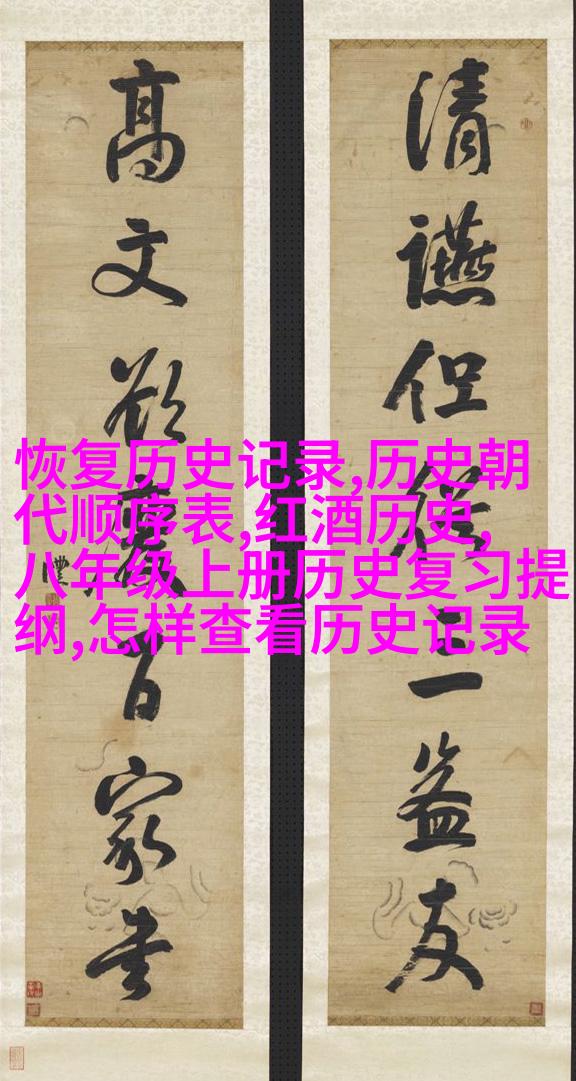 清讌但從三益友
高文欲百家書
恢复历史记录,历史朝
代顺序表,红酒历史,
八年级上册历史复习提
纲,怎样查看历史记录